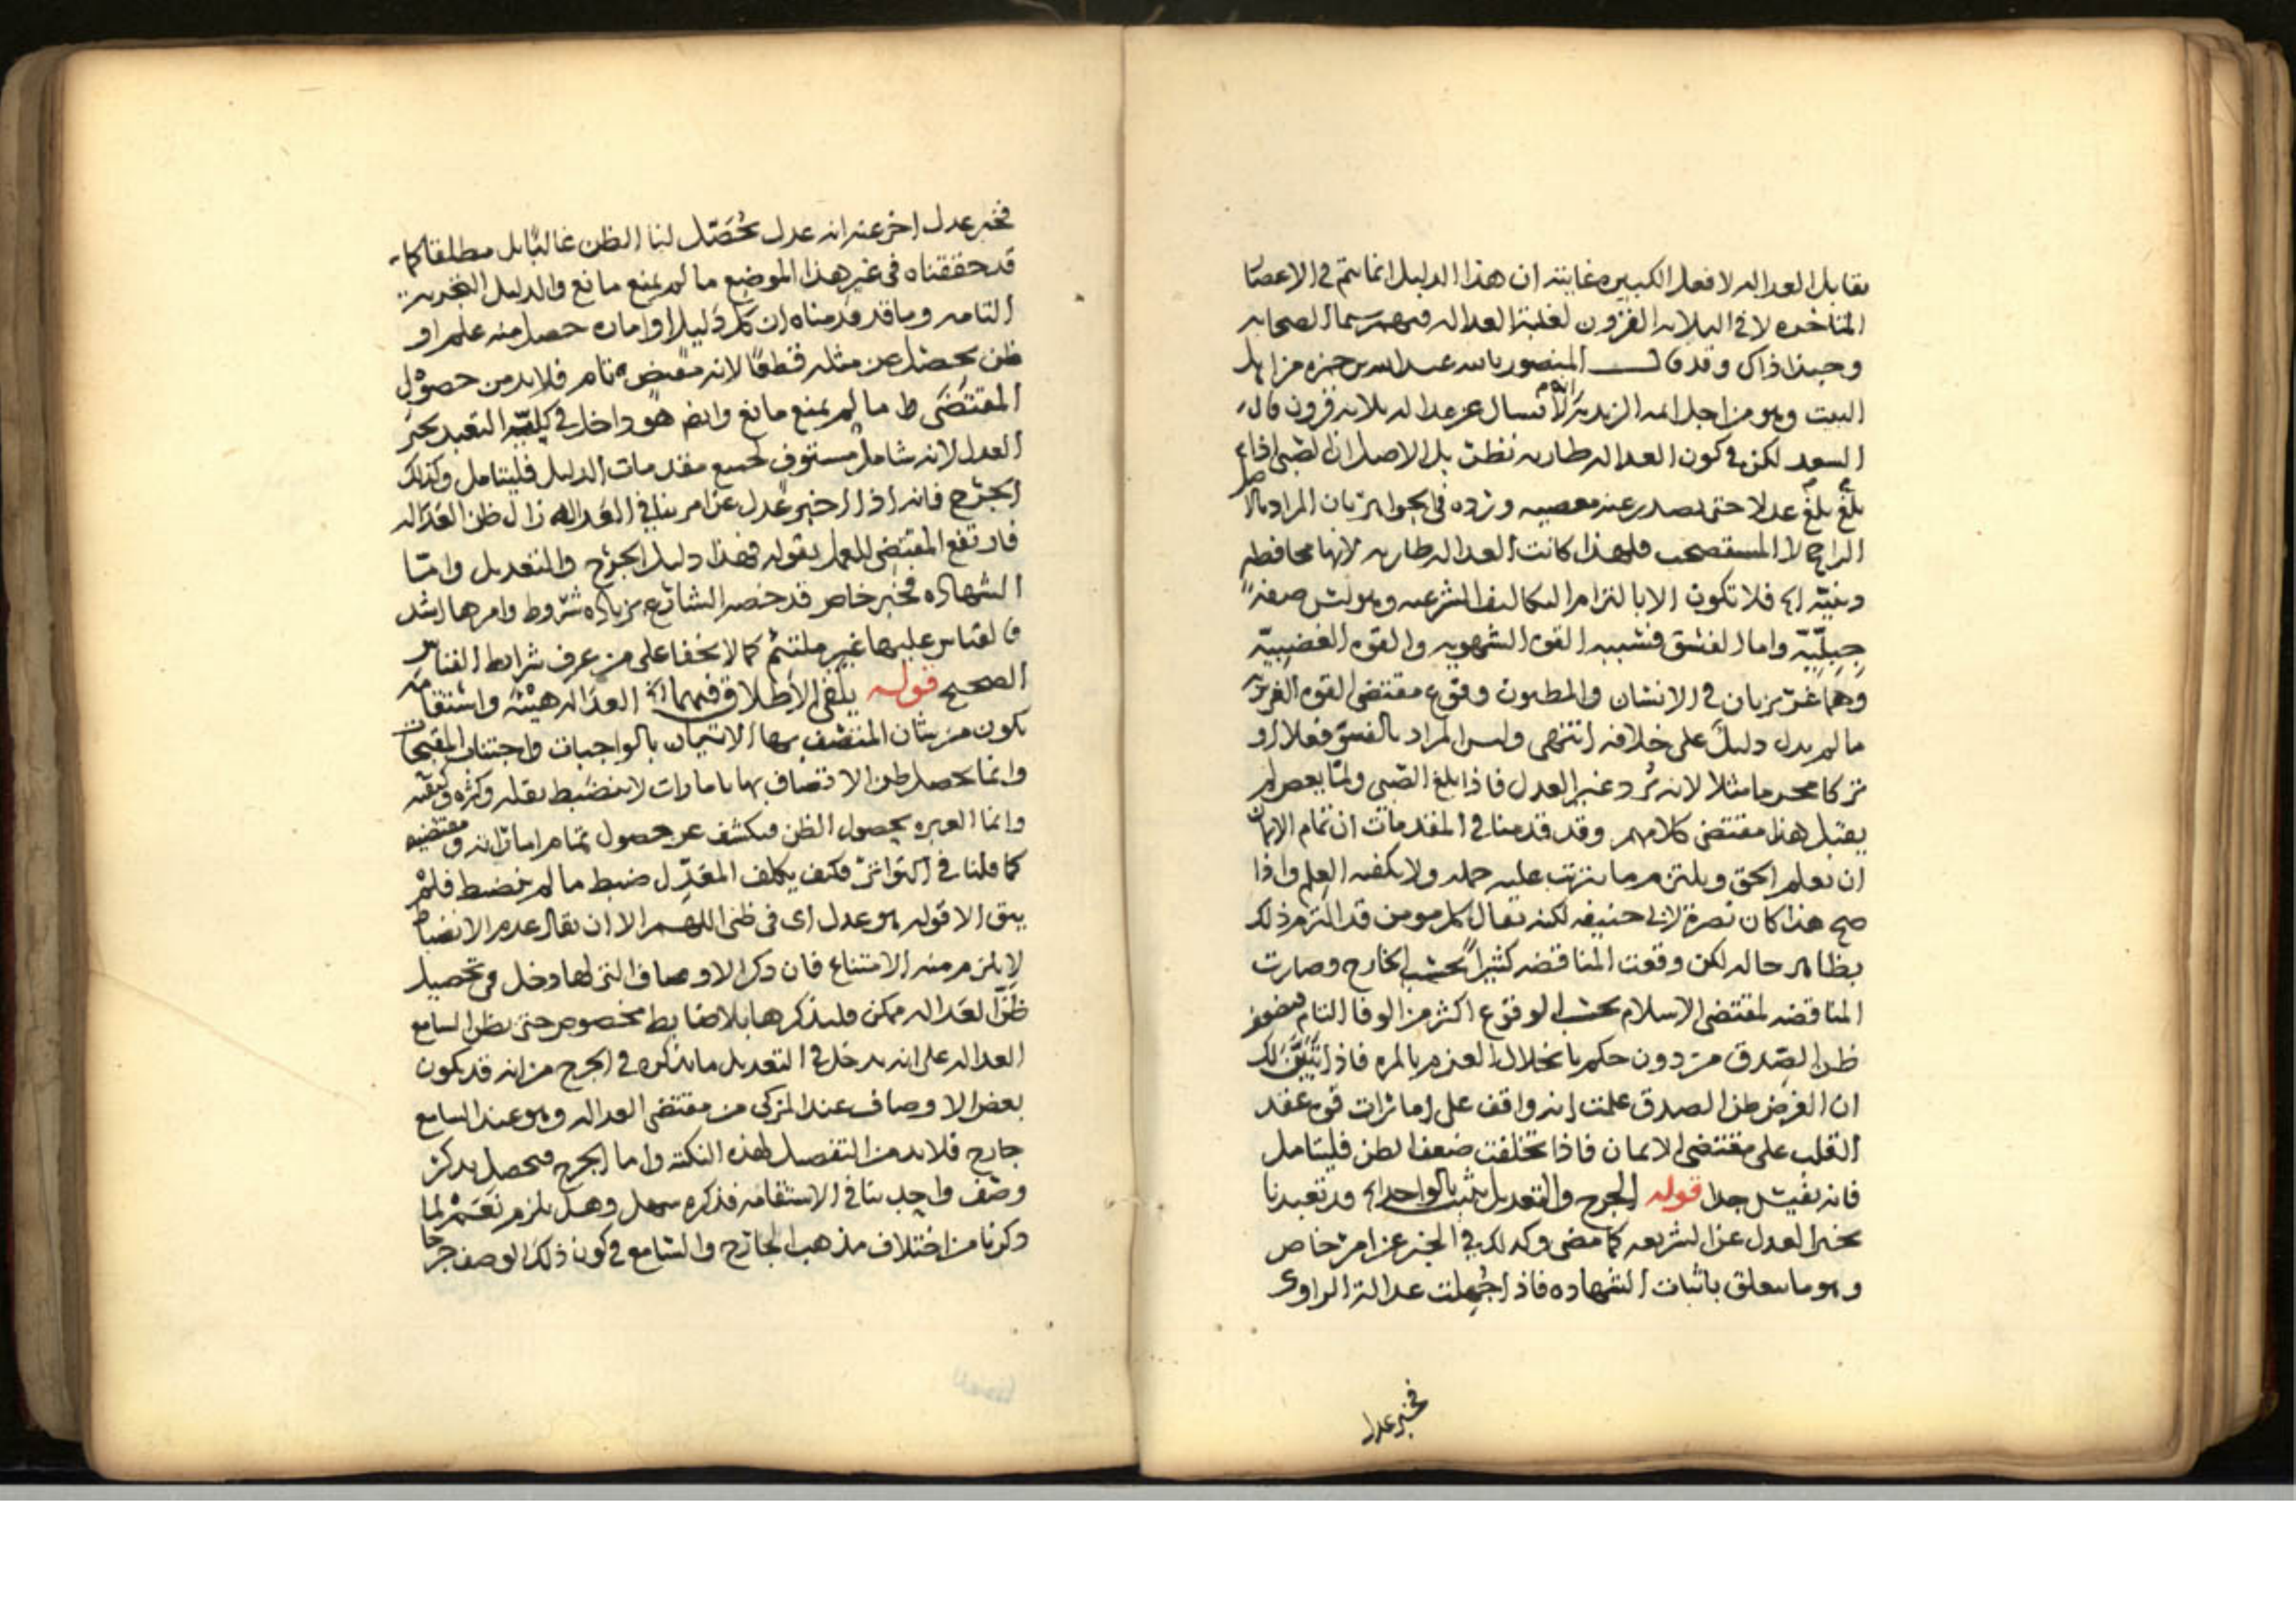 يقابل العداله لا فعل الكبيره غايته ان هذا الدليل انما يتم في الاعصا
المتاخره لا في الثلاثه القرون لغلبة العداله فيهم سيما الصحابه
وحبذا ذاك وقد قال المنصور بالله عبدالله بن حمزه من اهل
البيت وهو من اجل ائمه الزيديه لا تسال عن عداله ثلاثه قرون قال
السعد لكن في كون العداله طاريه نظر بل الاصل ان الصبي اذا
بلغ بلغ عدلا حتى يصدر عنه معصيه ورده في الجواهر بان المراد بالاصل
الراجح لا المستصحب فلهذا كانت العداله طاريه لانها محافظه
دينيّه الخ فلا تكون الا بالتزام التكاليف الشرعيه وهو ليس صفةً
جبليّة واما الفسق فسببه القوة الشهويه والقوه الغضبيّه
وهما غريزيان في الانسان والمظنون وقوع مقتضى القوه الغريزيه
ما لم يدل دليل على خلافه انتهى وليس المراد بالفسق فعلا او
تركا محرما مثلا لانه يُرد غير العدل فاذا بلغ الصبي ولمّا يعص لم
يقبل هذا مقتضى كلامهم وقد قدمنا في المقدمات ان تمام الايمان
ان يعلم الحق ويلتزم ما يترتب عليه حمله ولا يكفيه العلم واذا
صح هذا كان نصرة لابي حنيفه لكنه يقال كل مومن قد التزم ذلك
بظاهر حاله لكن وقعت المناقضه كثيراً بحسب الخارج وصارت
المناقضه لمقتضى الاسلام بحسب الوقوع اكثر من الوفا التام فيضعف
ظن الصدق من دون حكم بانخلال العزم بالمره فاذا تبيّن لك
ان الغرض ظن الصدق علمت انه واقف على امارات قوه عقد
القلب على مقتضى الايمان فاذا تخلفت ضعف الظن فليتامل
فانه نفيس جدا قوله الجرح والتعديل يثبت بالواحد الخ قد تعبدنا
بخبر العدل عن الشريعه كما مضى وكذلك في الخبر عن امر خاص
وهو ما يتعلق باثبات الشهاده فاذا جُهلت عدالة الراوي
فخبر عدل
فخبر عدل اخر عنه انه عدل يُحَصّل لنا الظن غالبًا بل مطلقا كما
قد حققناه في غير هذا الموضع ما لم يمنع مانع والدليل التجربه
التامه وما قد قدمناه ان كل دليل او اماره حصل منه علم او
ظن يحصل عن مثله قطعًا لانه مقتض تام فلابد من حصول
المقتضَى ط ما لم يمنع مانع وايضا هو داخل في كليّة التعبد بخبر
العدل لانه شامل مستوف لجميع مقدمات الدليل فليتامل وكذلك
الجرح فانه اذا اخبر عدل عن امر ينافي العداله زال ظن العداله
فارتفع المقتضي للعمل بقوله فهذا دليل الجرح والتعديل وامّا
الشهاده فخبر خاص قد خصه الشارع بزياده شروط وامرها اشد
فالقياس عليها غير ملتئم كما لا يخفا على من عرف شرايط القياس
الصحيح قوله يكفي الاطلاق فيهما الخ العداله هيئة واستقامه
يكون من شان المتصف بها الاتيان بالواجبات واجتناب المقبحات
وانما يحصل ظن الاتصاف بها بامارات لا ينضبط بقله وكثره وكيفيه
وانما العبره بحصول الظن فيكشف عن حصول تمام اماراته ومقتضيه
كما قلنا في التواتر فكيف يكلف المعدِّل ضبط ما لم ينضبط فلم
يبق الا قوله هو عدل اى في ظني اللهم الا ان يقال عدم الانضباط
لا يلزم منه الامتناع فان ذكر الاوصاف التي لها دخل في تحصيل
ظن العداله ممكن فليذكرها بلا ضابط مخصوص حتى يظن السامع
العداله على انه يدخل في التعديل ما يذكره في الجرح من انه قد يكون
بعض الاوصاف عند المزكي من مقتضى العداله وهو عند السامع
جارح فلابد من التفصيل لهذه النكته واما الجرح فيحصل بذكر
وصف واحد ينافي الاستقامه فذكره سهل وهل يلزم نعم لما
ذكرنا من اختلاف مذهب الجارح والسامع في كون ذلك الوصف جرحا